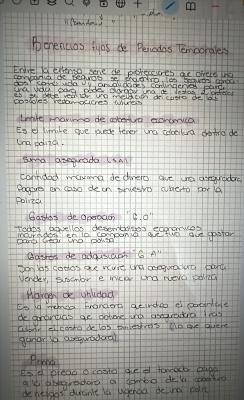 "(Bandera)"
Beneficios fijos de Periodos Temporales
Entre la extensa serie de protecciones que ofrece una
compañía de seguros se encuentra los seguros para
vida para
una vida
posibles reclamaciones futuras
Limite maximo de cobertura económica
Es el limite que puede tener una cobertura dentro de
una poliza.
Suma asegurada (SA)
Cantidad maxima de dinero que una aseguradora
pagara en caso de un siniestro cubierto por la
poliza
Gastos de operación "G.O"
Todos aquellos desembolsos economicos
incurridos en la compañia que tuvo que gastar
para crear una poliza
Gastos de adquisición "G.A"
Son los costos que incurre una aseguradora para
vender, suscribir e iniciar una nueva poliza
Margen de utilidad
Es la metrica financiera que indica el porcentaje
de ganancias que obtiene una aseguradora tras
cubrir el costo de los siniestros (lo que quiere
ganar la aseguradora)
Prima
Es el precio o costo que el tomador paga
a la aseguradora a cambio de la cobertura
de riesgos durante la vigencia de una poliza